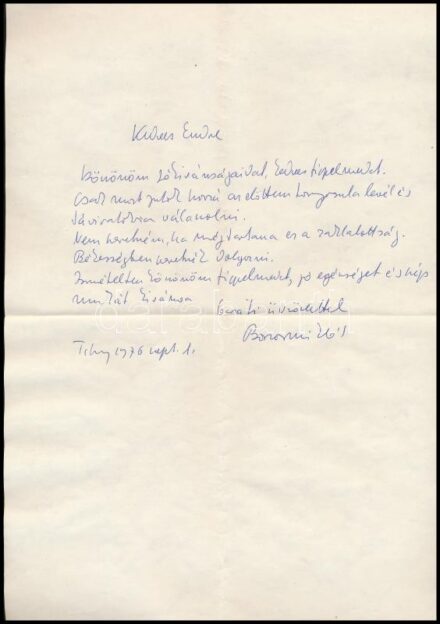 Kedves Endre
Köszönöm jókívánságaidat, kedves figyelmedet.
Csak most jutok hozzá az előttem levél és
táviratokra válaszolni.
Nem szeretném, ha még tartana ez a zaklatottság.
Békességben szeretnék dolgozni.
Ismételten köszönöm figyelmedet, jó egészséget és szép
munkát kívánva
baráti üdvözlettel
Borsos Miklós
Tihany 1976 sept. 1.
darabanth